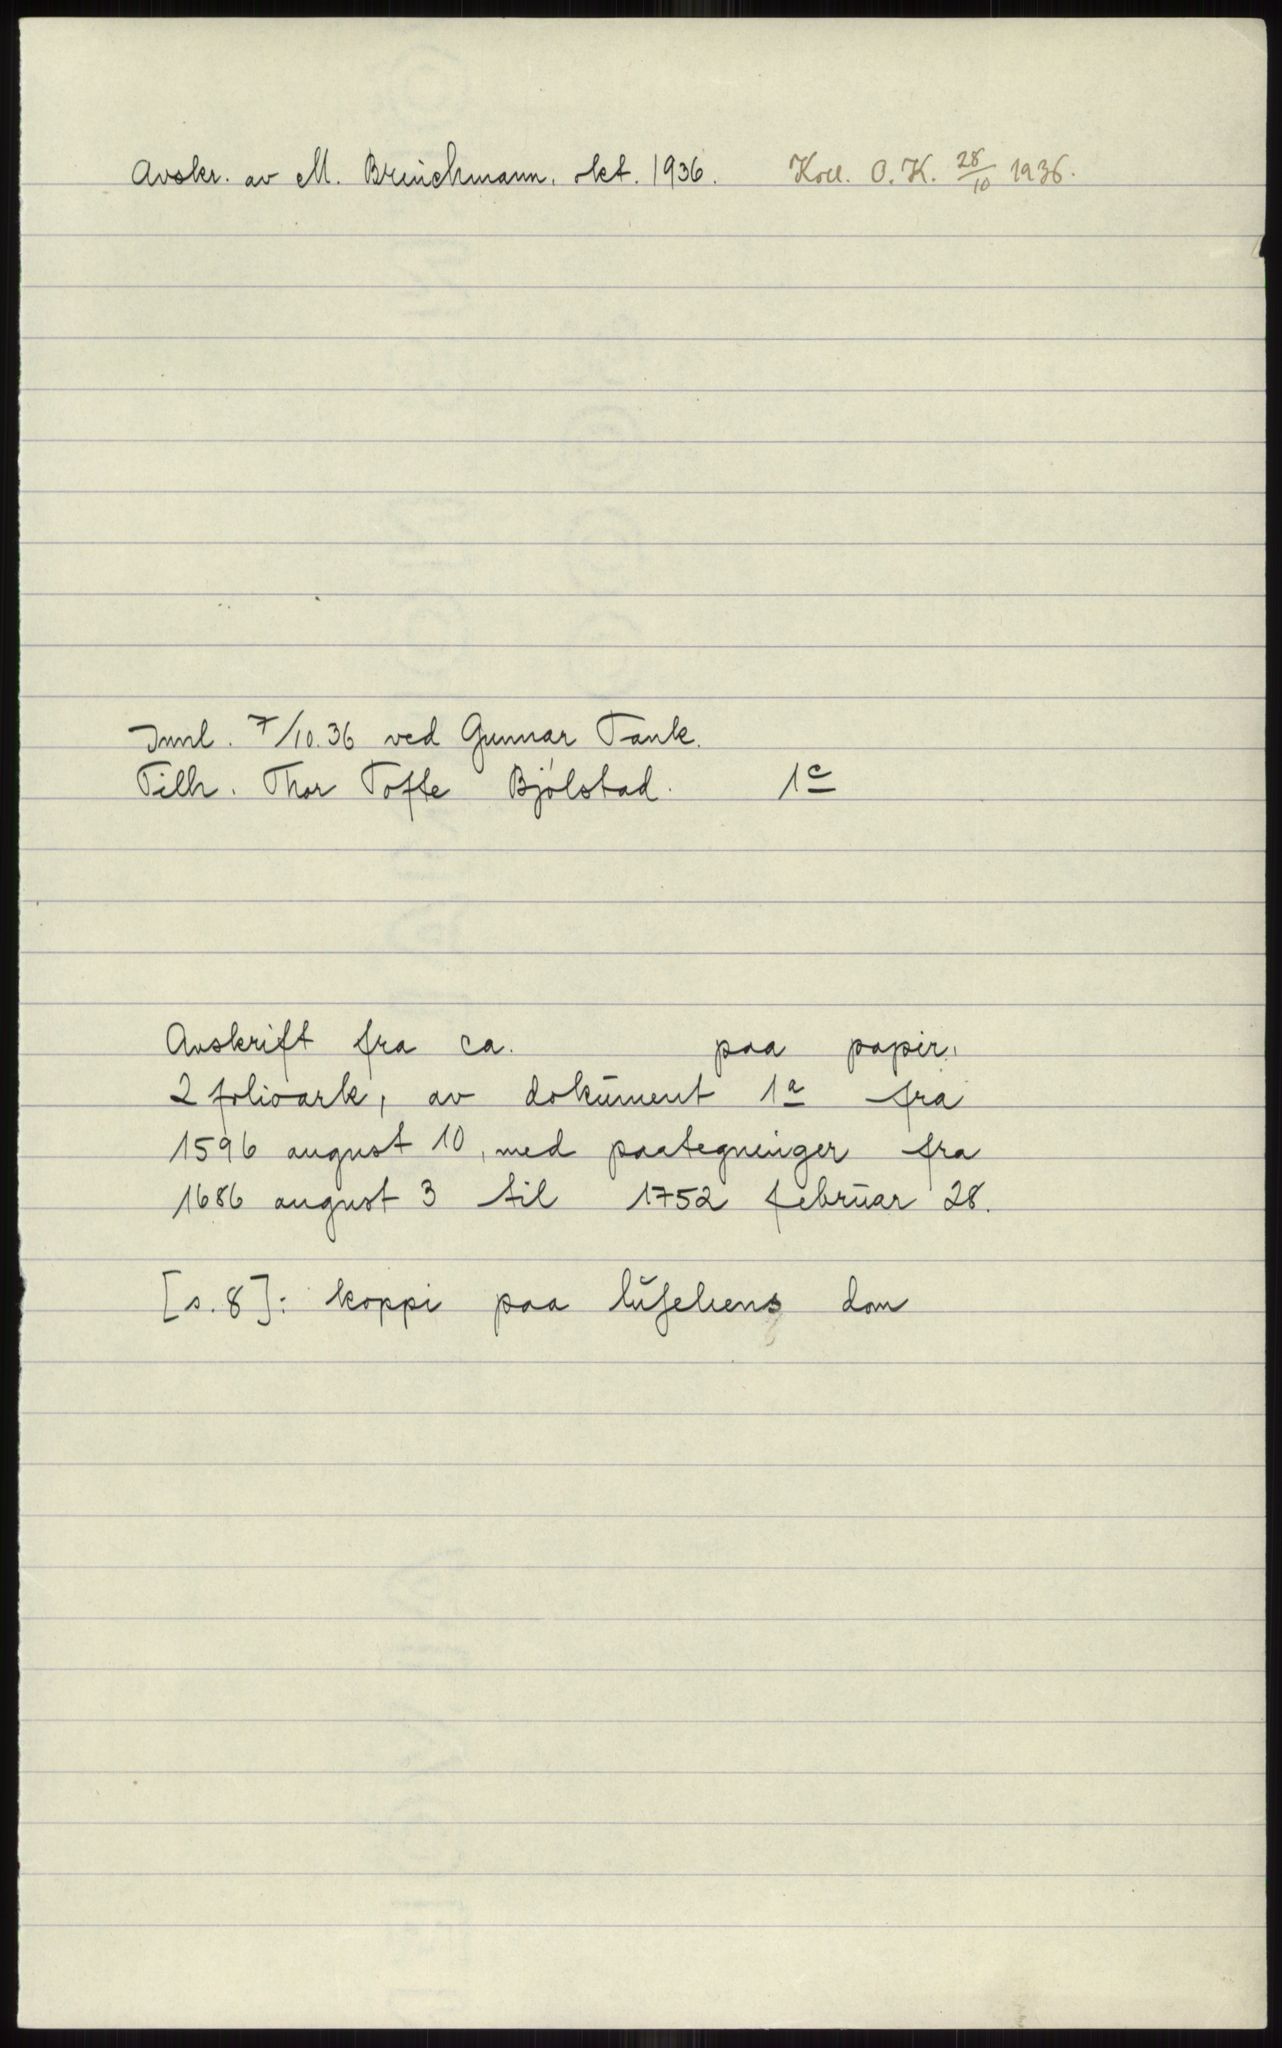 Avskr. av M. Brinchmann, okt. 1936. Koll. O.K. 28/10 1936.
Innl. 7/10.36 ved Gunnar Tank.
Tilh. Thor Tofte Bjølstad. 1c
Avskrift fra ca. paa papir,
2 folioark, av dokument 1a fra
1596 august 10, med paategninger fra
1686 august 3 til 1752 februar 28.
[s. 8]: koppi paa dom